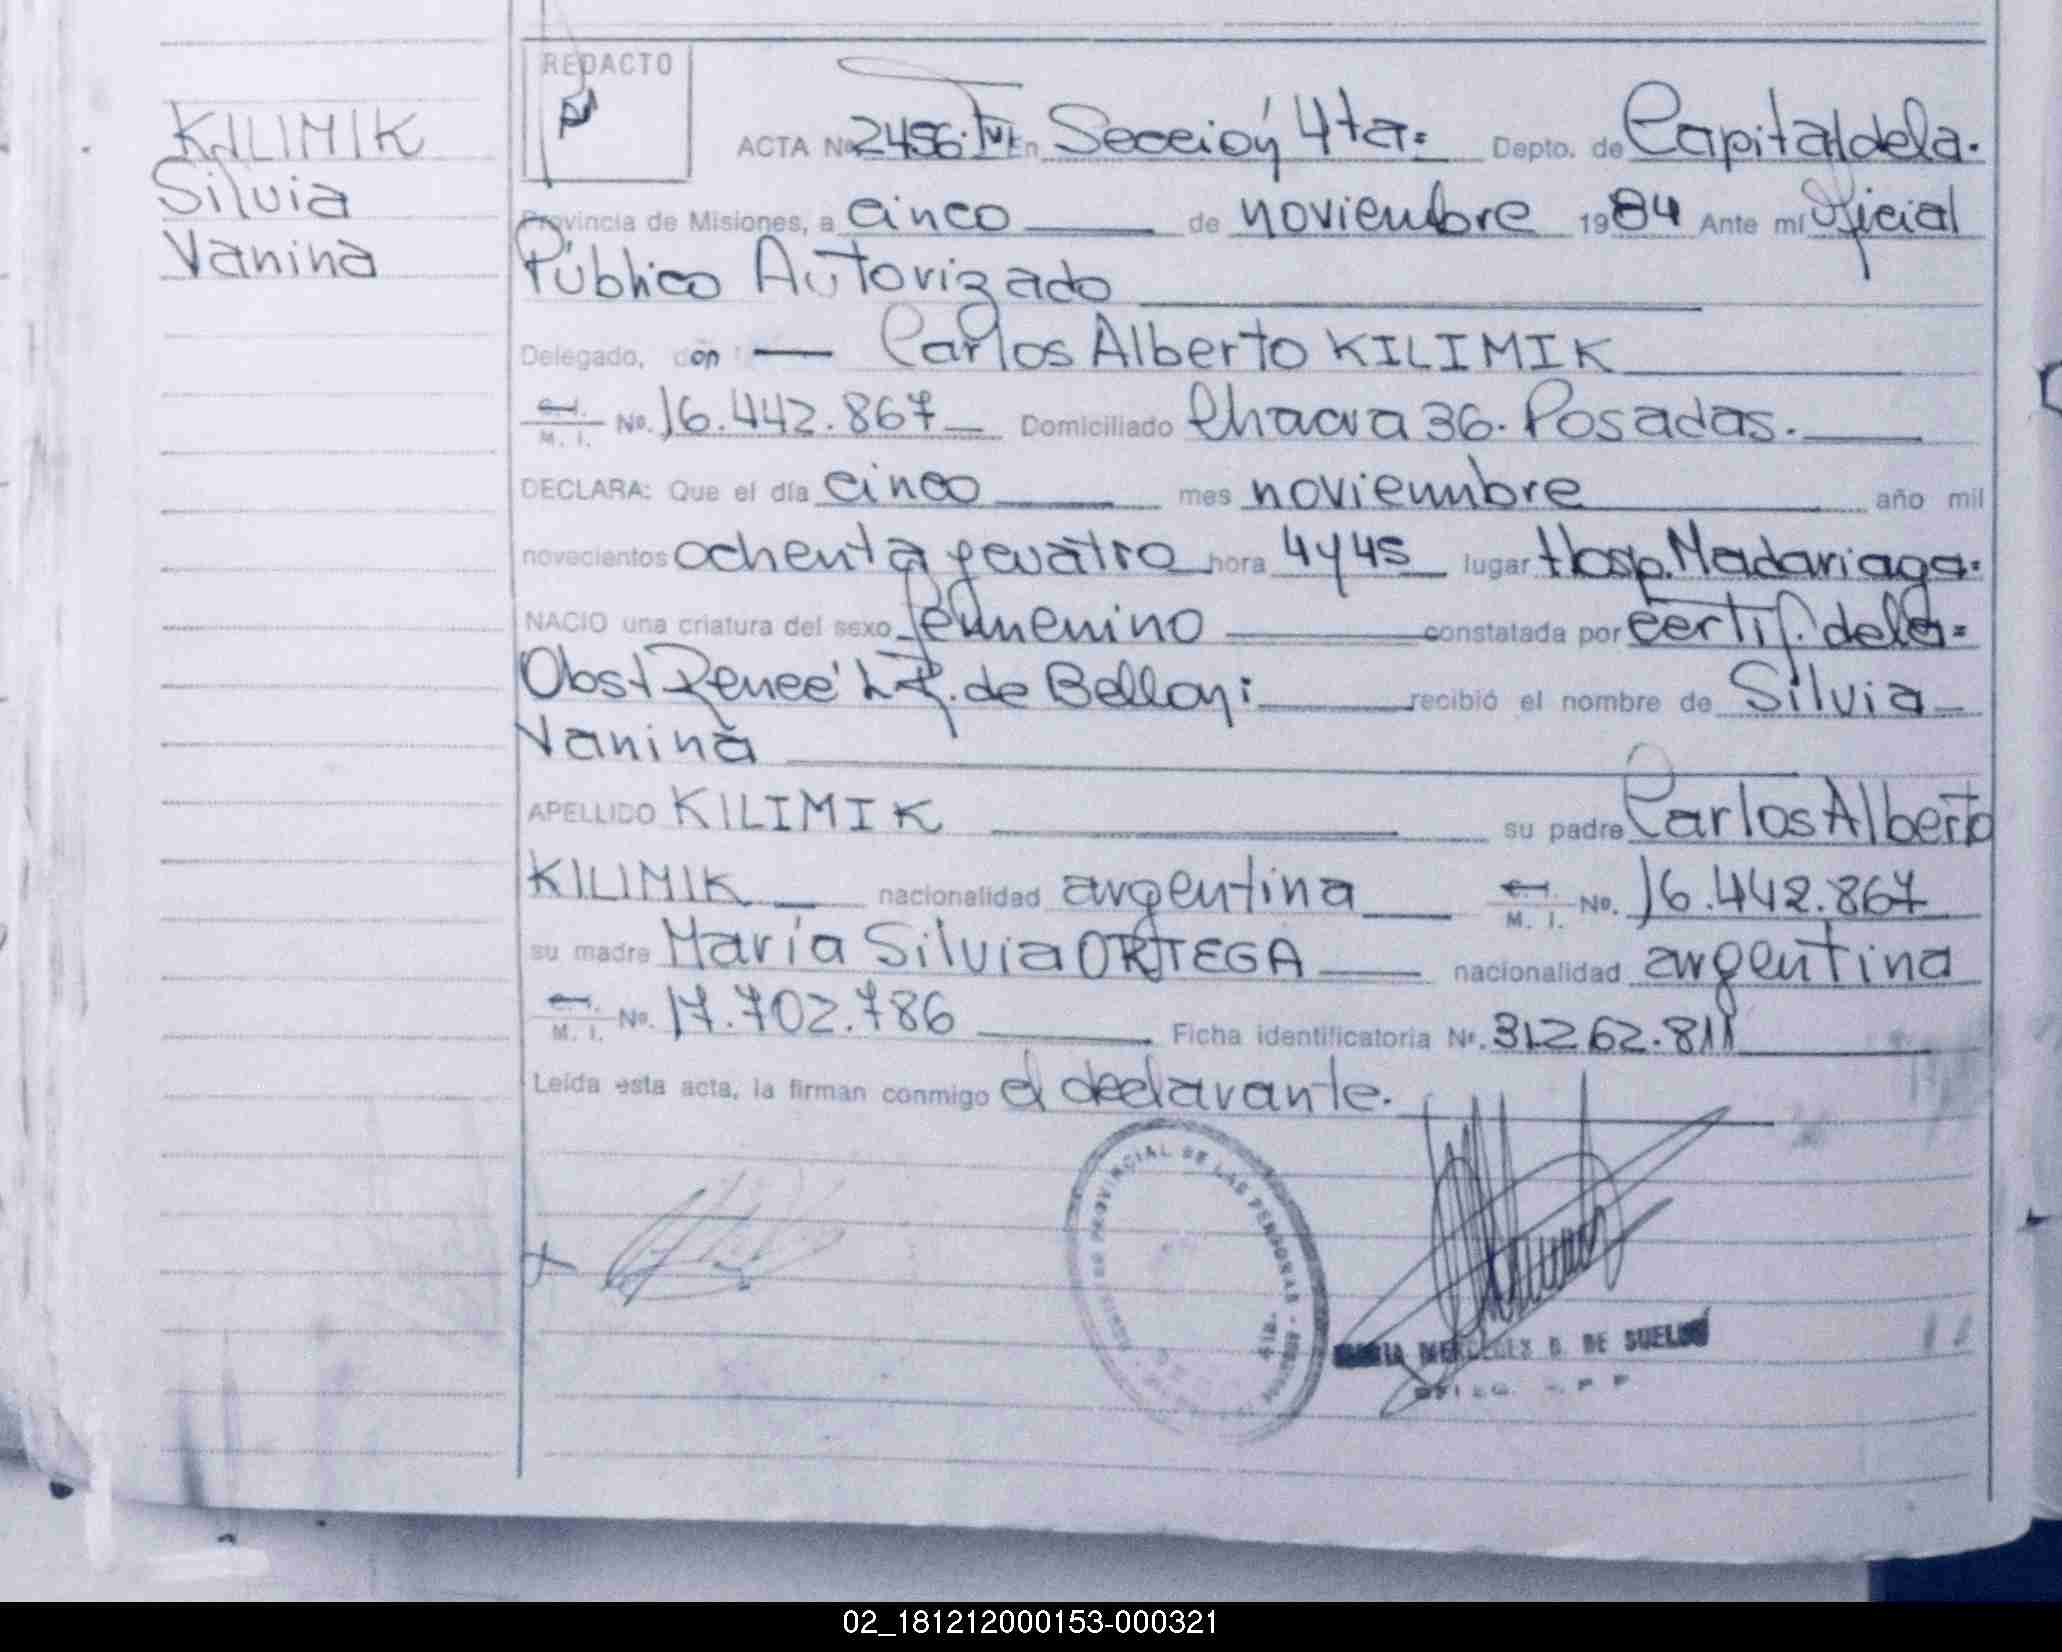 KILIMIK
Silvia
Vanina
REDACTO
ACTA Nº 2456. En Sección 4ta= Depto. de Capital dela.
Provincia de Misiones, a cinco de noviembre 1984 Ante mí Oficial
Público Autorizado
Delegado, don Carlos Alberto KILIMIK
M. I. No. 16.442.867 Domiciliado Chacra 36. Posadas.
DECLARA: Que el día cinco mes noviembre año mil
novecientos ochenta y cuatro hora 4 y 45 lugar Hosp. Madariaga=
NACIO una criatura del sexo femenino constatada por certif. dela=
Obst Reneé de Belloni recibió el nombre de Silvia
Vanina
APELLIDO KILIMIK su padre Carlos Alberto
KILIMIK nacionalidad argentina M. I. No. 16.442.867
su madre María Silvia ORTEGA nacionalidad argentina
M. I. No. 17.702.786 Ficha identificatoria Nº. 31262.811
Leída esta acta, la firman conmigo el declarante.
PROVINCIAL DE LAS PERSONAS
MARIA MERCEDES B. DE SUELDO
02_181212000153-000321